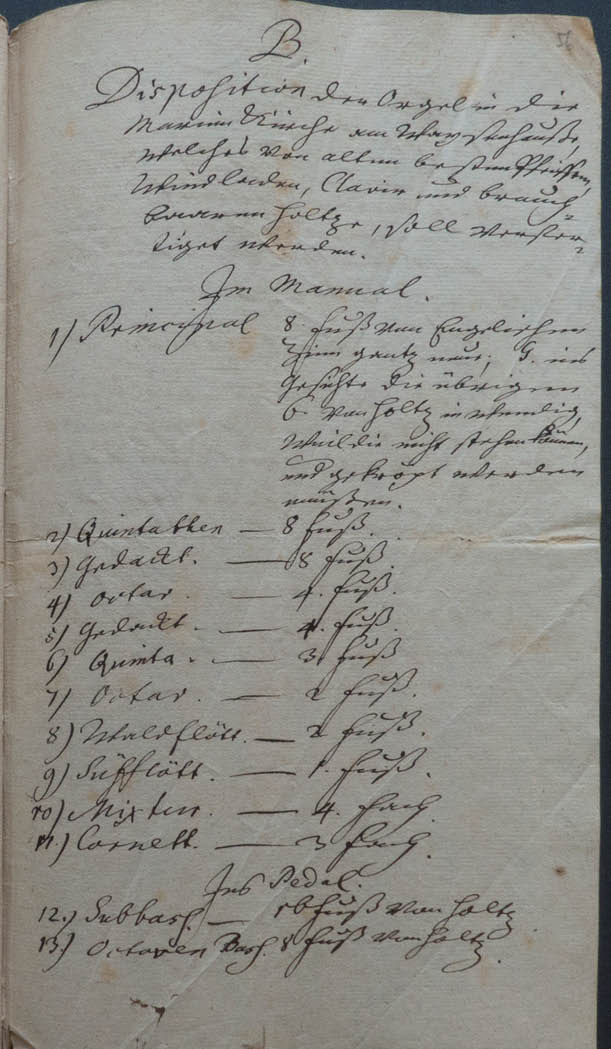 56
B.
Disposition der Orgel in die
Marien Kirche am Waysenhauße,
welches von alten besten Pfeiffen,
Windladen, Clavir und brauch-
baaren Holtze, soll verfer-
tiget werden.
Im Manual.
1) Principal 8. Fuß von Englischen
Zinn gantz neue; G. ins
Gesichte die übrigen
6. von Holtz inwendig,
weil die nicht stehen können,
und gekröpt werden
müßen.
2) Quintathen — 8 Fuß.
3) Gedackt. — 8 Fuß.
4) Octav. — 4. Fuß.
5) Gedackt. — 4. Fuß.
6) Quinta. — 3. Fuß
7) Octav. — 2 Fuß.
8) Waldflött. — 2 Fuß.
9) Süfflött. — 1. Fuß.
10) Mixtur. — 4. fach.
11.) Cornett. — 3 fach.
Ins Pedal.
12.) Subbass. — 16 Fuß von Holtz.
13.) Octaven Bass. 8 Fuß von Holtz.